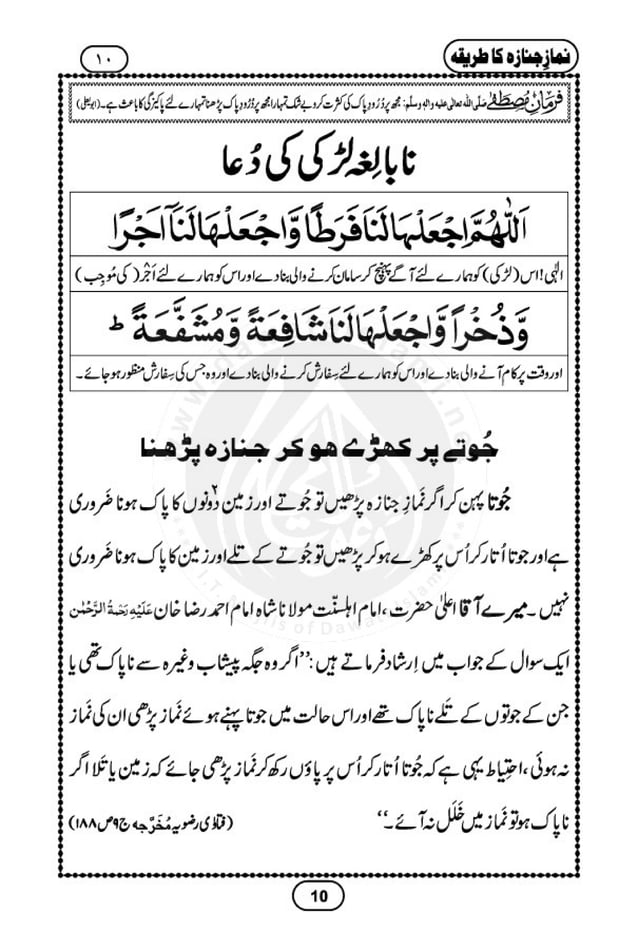 نمازِ جنازہ کا طریقہ
۱۰
فرمانِ مصطفےٰ صلی اللہ تعالیٰ علیہ والہٖ وسلم: مجھ پر دُرُودِ پاک کی کثرت کرو بے شک تمہارا مجھ پر دُرُودِ پاک پڑھنا تمہارے لئے پاکیزگی کا باعث ہے۔ (ابویعلیٰ)
نابالِغہ لڑکی کی دُعا
اَللّٰهُمَّ اجْعَلْهَا لَنَا فَرَطًا وَّاجْعَلْهَا لَنَآ اَجْرًا
الٰہی! اس (لڑکی) کو ہمارے لئے آگے پہنچ کر سامان کرنے والی بنا دے اور اس کو ہمارے لئے اَجْر (کی مُوجِب)
وَّذُخْرًا وَّاجْعَلْهَا لَنَا شَافِعَةً وَّمُشَفَّعَةً ؕ
اور وقت پر کام آنے والی بنا دے اور اس کو ہمارے لئے سِفارِش کرنے والی بنا دے اور وہ جس کی سِفارِش منظور ہو جائے۔
جُوتے پر کھڑے ہو کر جنازہ پڑھنا
جُوتا پہن کر اگر نَمازِ جنازہ پڑھیں تو جُوتے اور زمین دونوں کا پاک ہونا ضَروری
ہے اور جوتا اُتار کر اُس پر کھڑے ہو کر پڑھیں تو جُوتے کے تلے اور زمین کا پاک ہونا ضَروری
نہیں۔ میرے آقا اعلیٰ حضرت، امامِ اہلسنّت مولانا شاہ امام احمد رضا خان عَلَیْہِ رَحْمَۃُ الرَّحْمٰن
ایک سوال کے جواب میں اِرشاد فرماتے ہیں: ’’اگر وہ جگہ پیشاب وغیرہ سے ناپاک تھی یا
جن کے جوتوں کے تَلے ناپاک تھے اور اس حالت میں جوتا پہنے ہوئے نَماز پڑھی ان کی نَماز
نہ ہوئی، احتیاط یہی ہے کہ جُوتا اُتار کر اُس پر پاؤں رکھ کر نَماز پڑھی جائے کہ زمین یا تَلا اگر
ناپاک ہو تو نَماز میں خَلَل نہ آئے۔‘‘ (فتاوٰی رضویہ مُخَرَّجہ ج۹ ص۱۸۸)
10